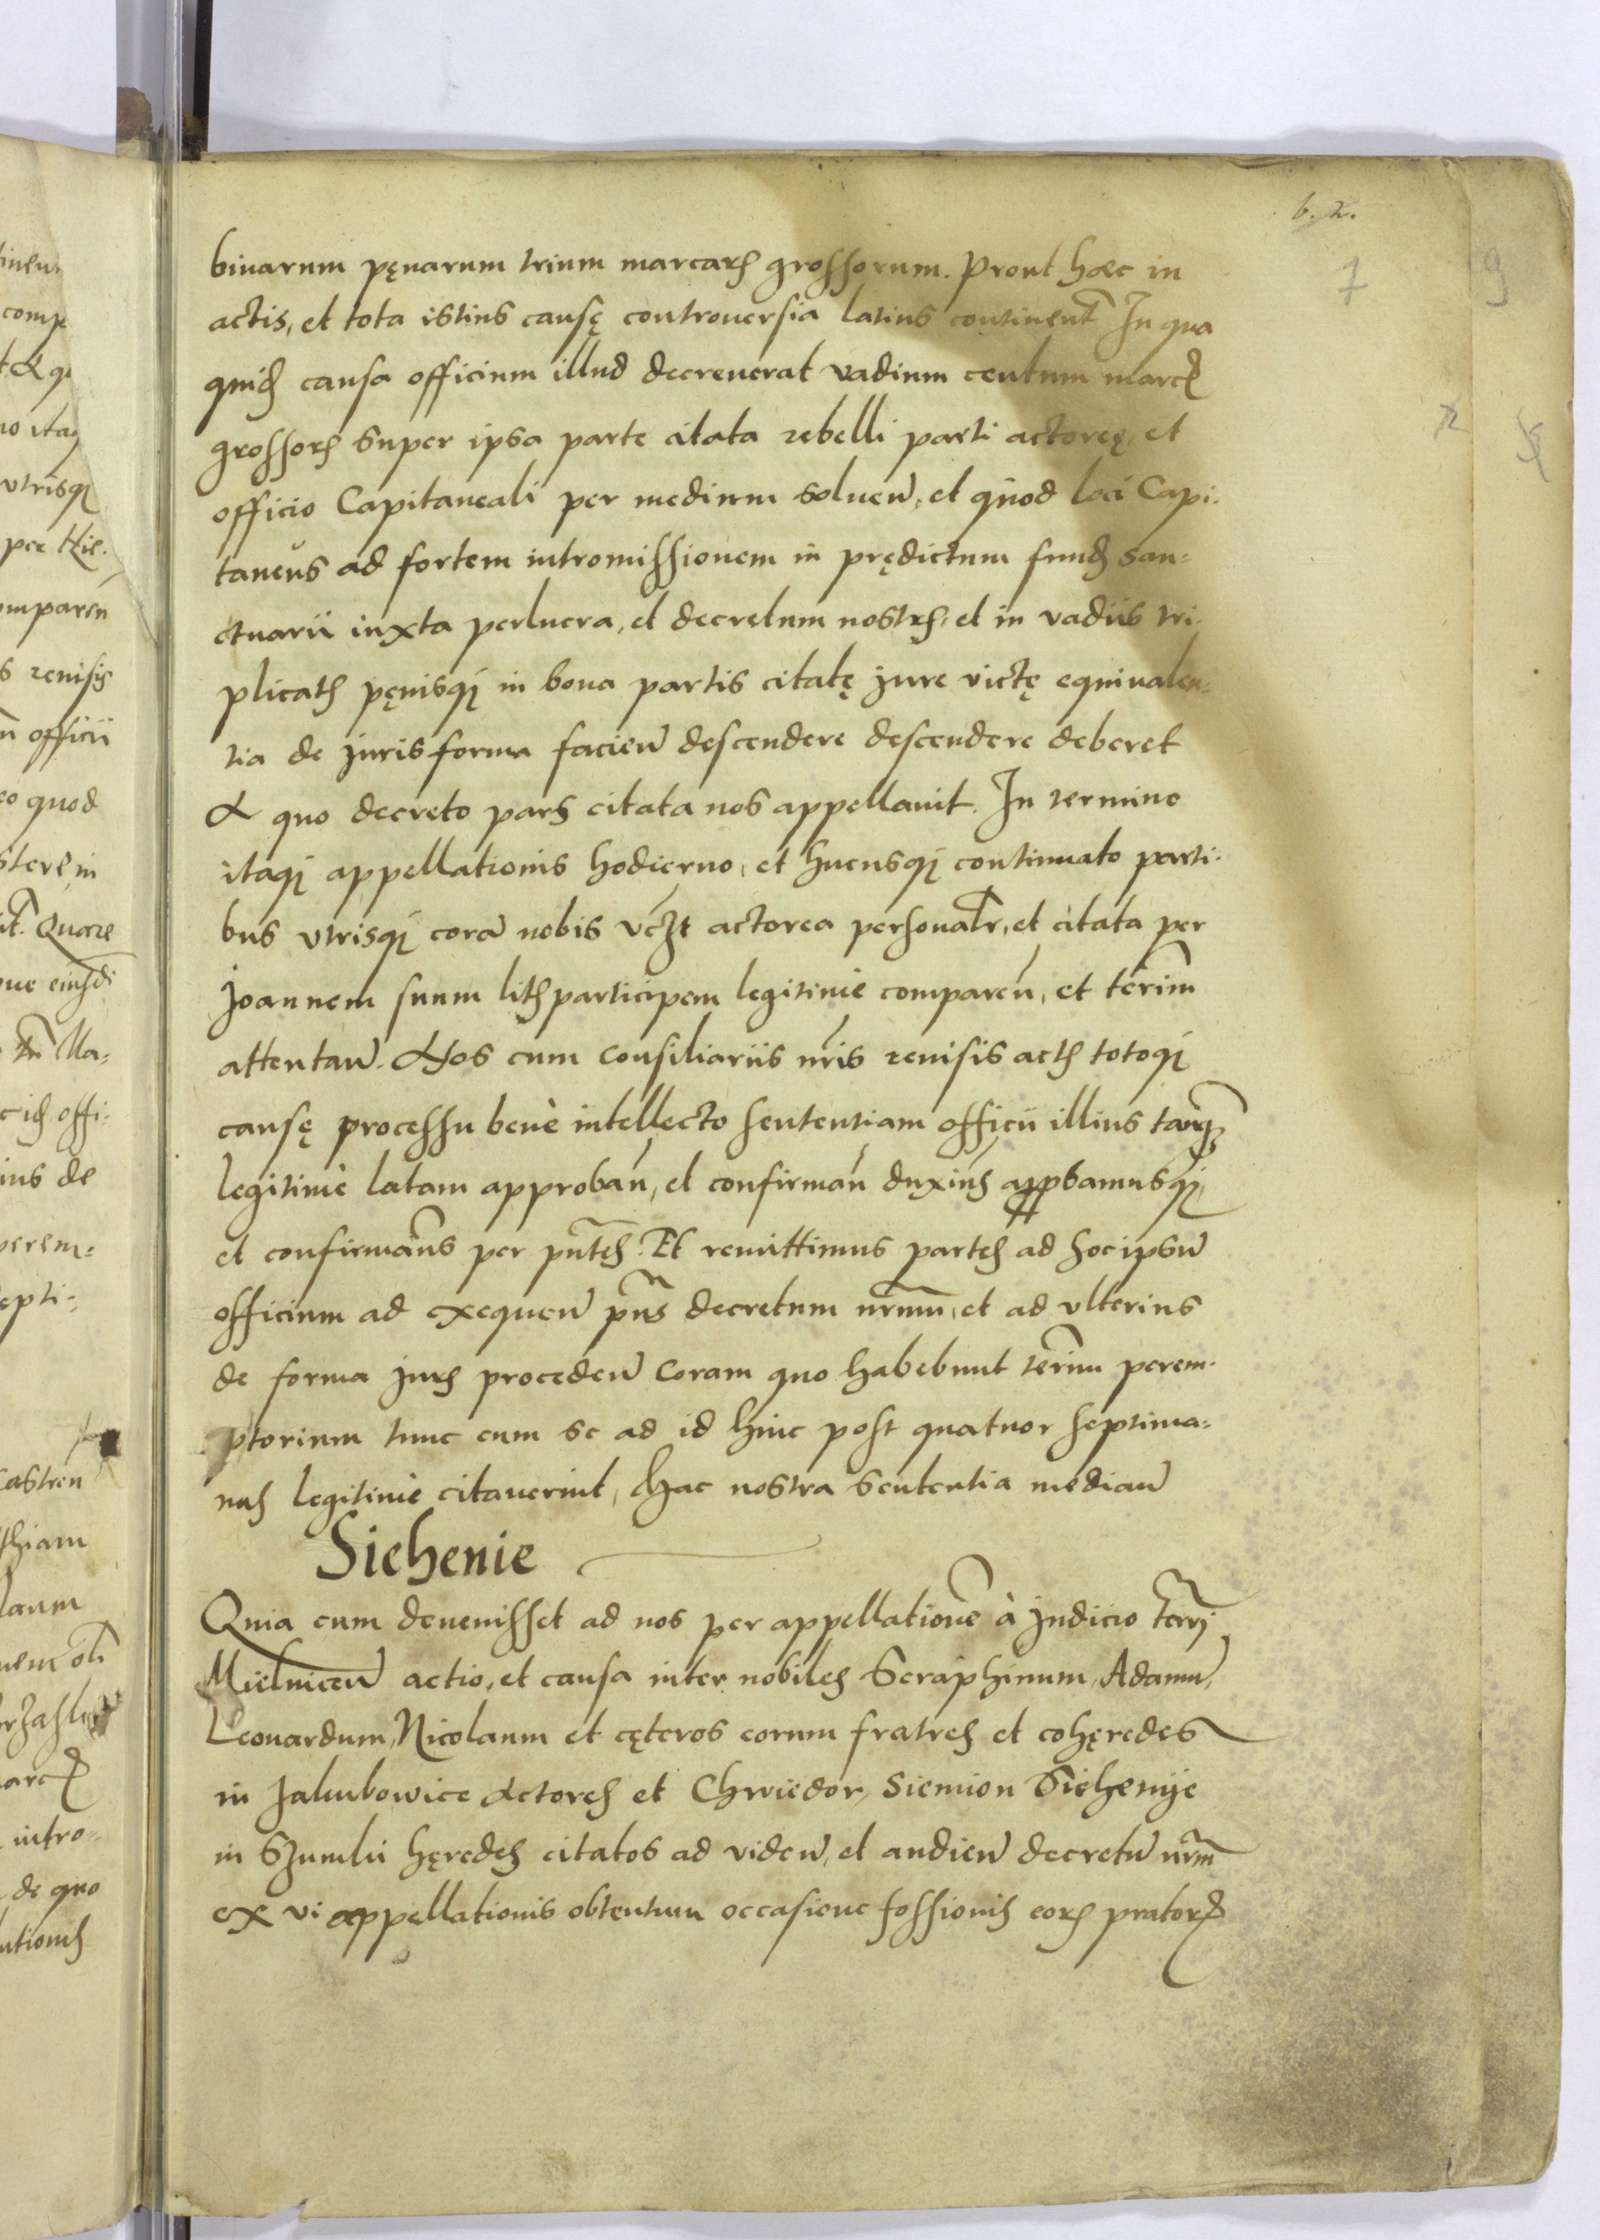 binarum pęnarum trium marcarꝝ grossorum. Prout hæc in
actis, et tota istius causę controuersia latius continent̃ In qua
quidꝫ causa officium illud decreuerat vadium centum marcꝝ
grossorꝝ super ipsa parte citata rebelli parti actoreę, et
officio Capitaneali per medium soluen̄, et quod loci Capi-
taneus ad fortem intromissionem in prędictum fundꝫ san-
ctuarii iuxta perlucra, et decretum nostrꝝ, et in vadiis tri-
plicatꝭ pęnisqꝫ in bona partis citatę jure victę equiualen-
tia de jurisforma facien̄ descendere descendere deberet
A quo decreto pars citata nos appellauit. In termino
itaqꝫ appellationis hodierno, et hucusqꝫ continuato parti-
bus vtrisqꝫ corā nobis vcꝫt actorea personalr̃, et citata per
Joannem suum litꝭparticipem legitimè comparen̄, et ter̄im
attentan̄. Nos cum consiliariis nr̄is reuisis actꝭ totoqꝫ
causę processu benè intellecto sententiam officii illius tanqꝫ
legitimè latam approban̄, et confirman̄ duxim̄ꝰ appbamusqꝫ
et confirmam̄us per pn̄tes. Et remittimus partes ad hoc ipsum̄
officium ad exequen̄ pn̄s decretum nr̄um, et ad vlterius
de forma juris proceden̄ coram quo habebunt ter̄inu perem-
ptorium tunc cum se ad id hinc post quatuor septima-
nas legitimè citauerint, hac nostra sententia median̄
Siehenie
Quia cum deuenisset ad nos per appellationē à judicio terrj̄
Mielnicen̄ actio, et causa inter nobiles Seraphinum, Adamū,
Leonardum, Nicolaum et cęteros eorum fratres et cohęredes
in Jakubowice Actores et Chwiedor, Siemion Siehenije
in Szumki hęredes citatos ad viden̄, et audien̄ decretū nr̄m
ex vi appellationis obtentum occasione fossionis eorꝝ pratorꝝ